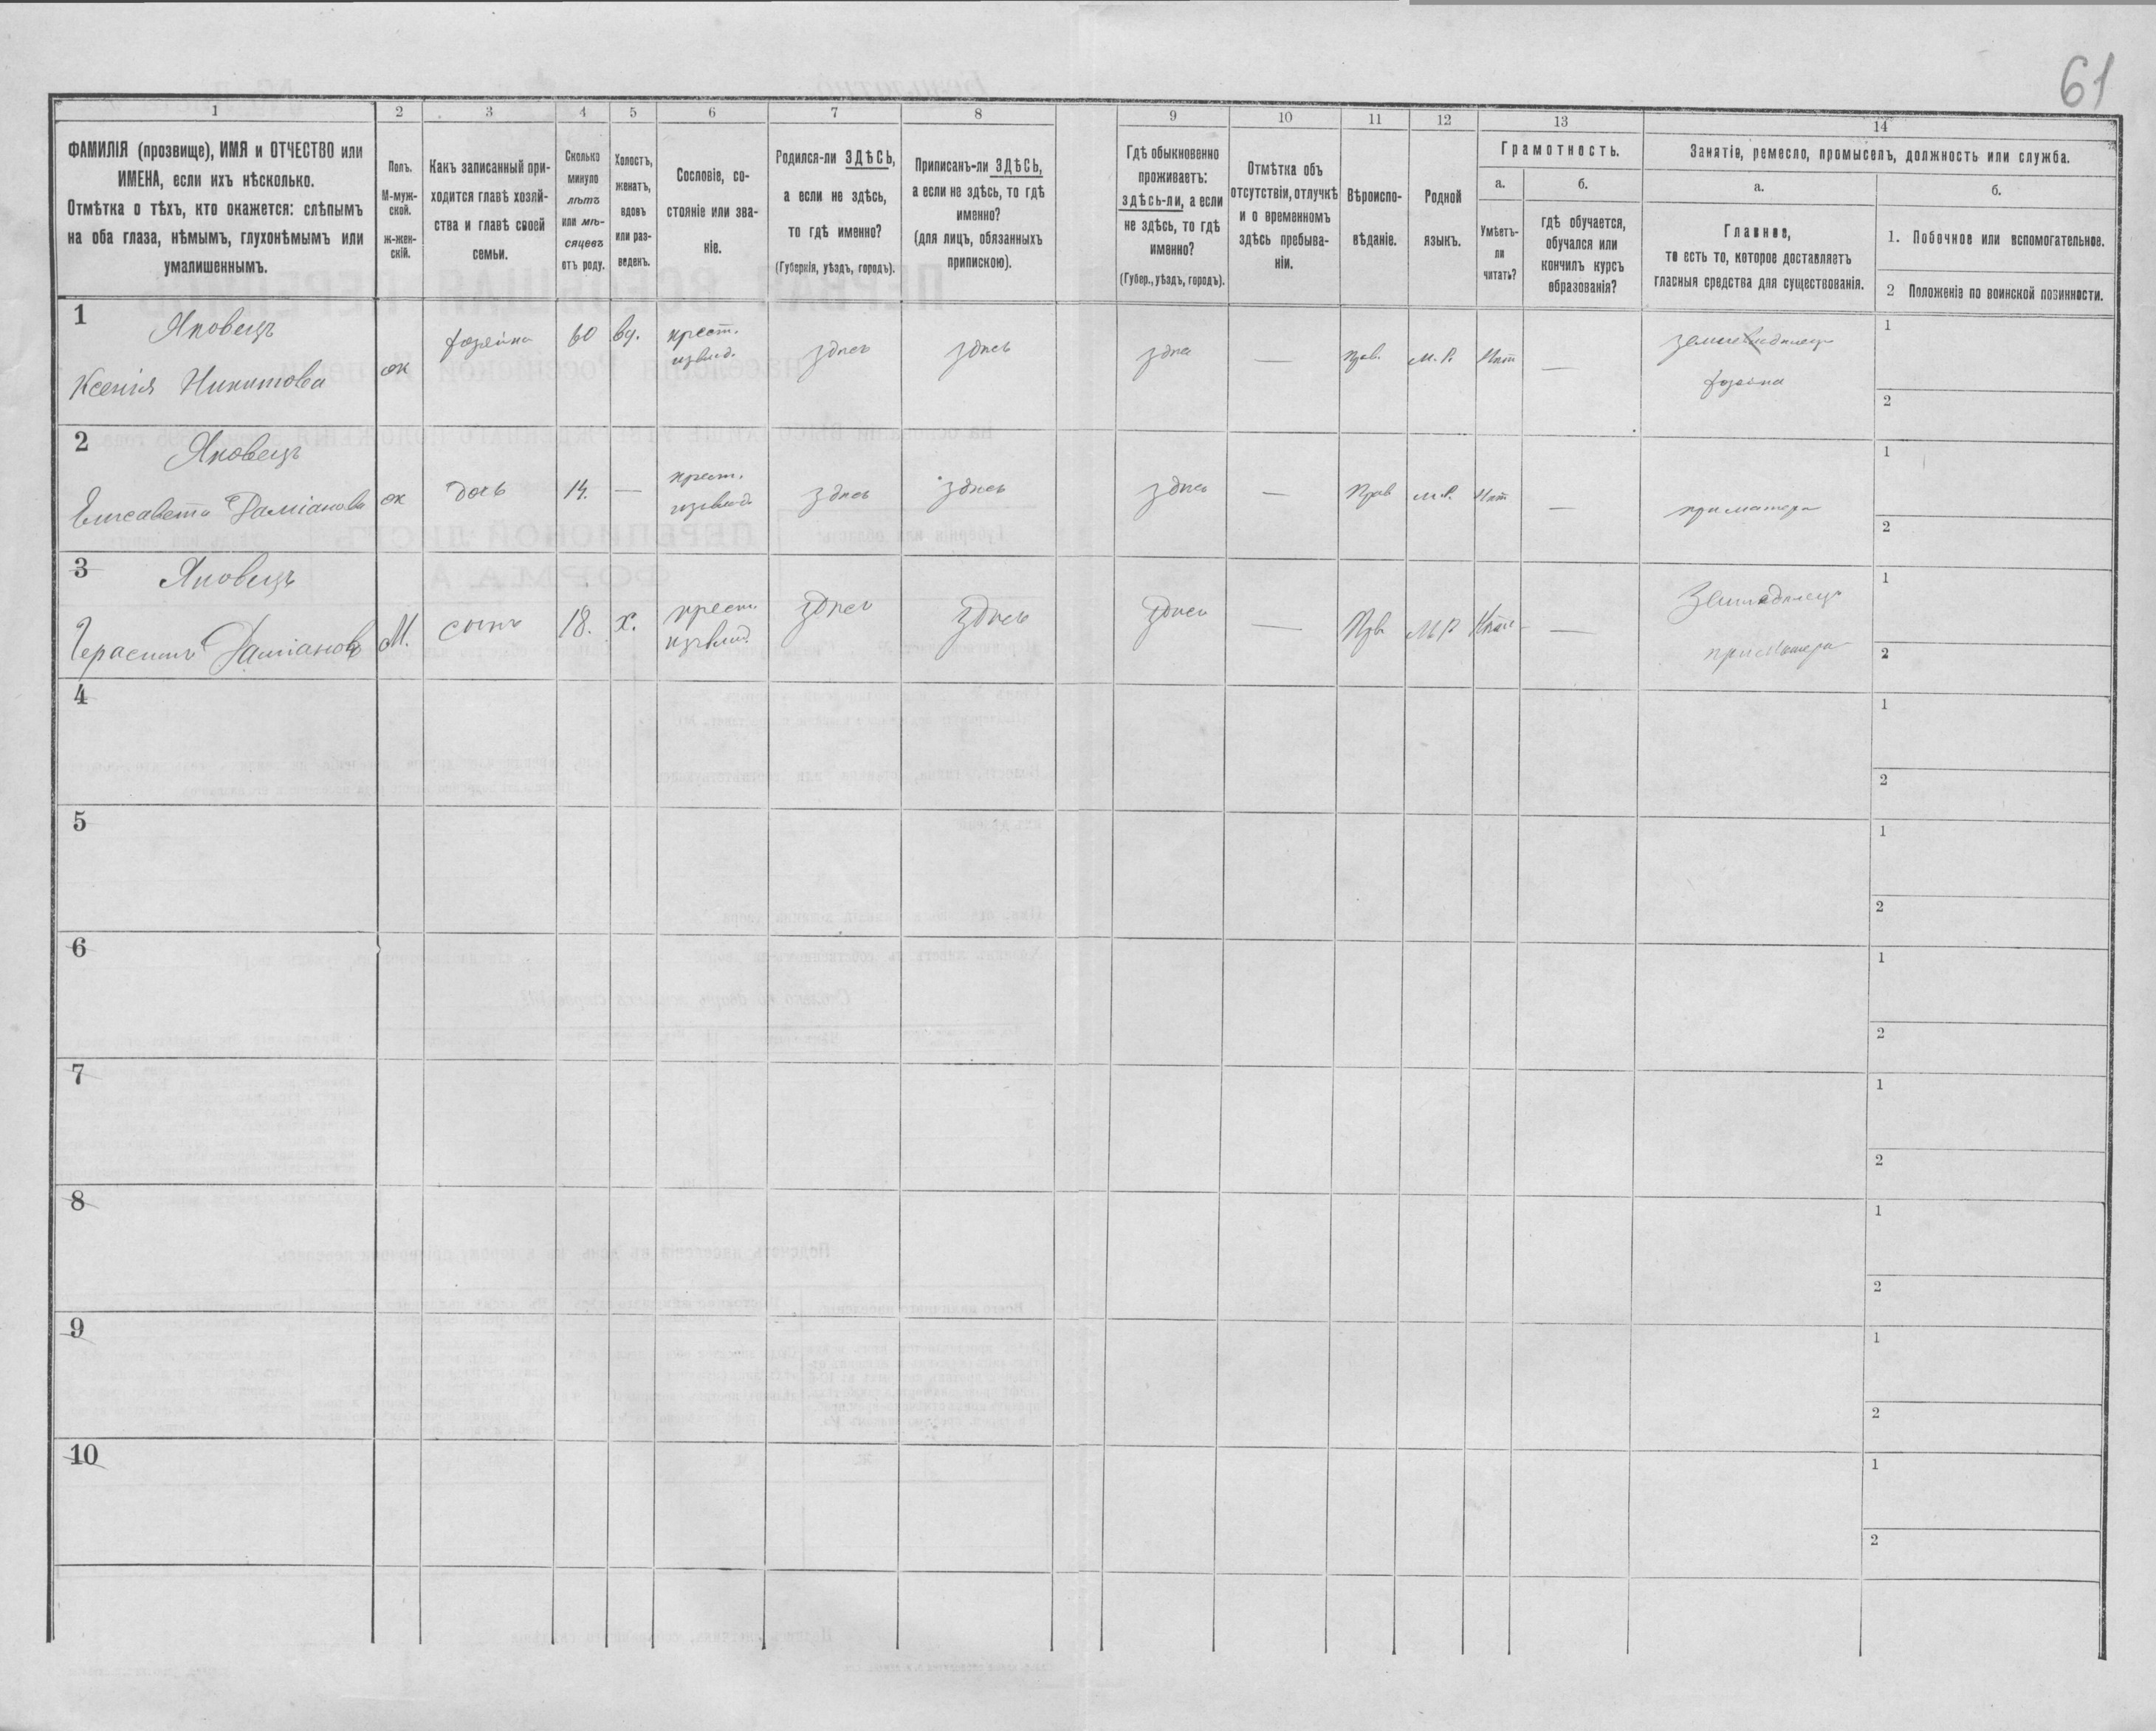 61
1
2
3
4
5
6
7
8
9
10
11
12
13
14
ФАМИЛІЯ (прозвище), ИМЯ и ОТЧЕСТВО или
ИМЕНА, если ихъ нѣсколько.
Отмѣтка о тѣхъ, кто окажется: слѣпымъ
на оба глаза, нѣмымъ, глухонѣмымъ или
умалишеннымъ.
Полъ.
М-муж-
ской.
ж-жен-
скій.
Какъ записанный при-
ходится главѣ хозяй-
ства и главѣ своей
семьи.
Сколько
минуло
лѣтъ
или мѣ-
сяцевъ
отъ роду.
Холостъ,
женатъ,
вдовъ
или раз-
веденъ.
Сословіе, со-
стояніе или зва-
ніе.
Родился-ли ЗДѢСЬ,
а если не здѣсь,
то гдѣ именно?
(Губернія, уѣздъ, городъ).
Приписанъ-ли ЗДѢСЬ,
а если не здѣсь, то гдѣ
именно?
(для лицъ, обязанныхъ
припискою).
Гдѣ обыкновенно
проживаетъ:
здѣсь-ли, а если
не здѣсь, то гдѣ
именно?
(Губер., уѣздъ, городъ).
Отмѣтка объ
отсутствіи, отлучкѣ
и о временномъ
здѣсь пребыва-
ніи.
Вѣроиспо-
вѣданіе.
Родной
языкъ.
Грамотность.
а.
Умѣетъ-
ли
читать?
б.
гдѣ обучается,
обучался или
кончилъ курсъ
образованія?
Занятіе, ремесло, промыселъ, должность или служба.
а.
Главное,
то есть то, которое доставляетъ
гласныя средства для существованія.
б.
1. Побочное или вспомогательное.
2 Положеніе по воинской повинности.
1
Яковецъ
Ксенія Никитова
ж
хозяйка
60
вд.
крест.
здѣсь
здѣсь
здѣсь
—
Прав.
М. Р.
Нѣт
—
хозяйка
1
2
2
Яковецъ
Елисавета Даміанова
ж
дочь
14.
—
крест.
здѣсь
здѣсь
здѣсь
—
Прав
М. Р.
Нѣт
—
при матери
1
2
3
Яковецъ
Герасимъ Даміановъ
М.
сынъ
18.
х.
крест.
здѣсь
здѣсь
здѣсь
—
Прв
М Р
—
Земледѣлецъ
при матери
1
2
4
1
2
5
1
2
6
1
2
7
1
2
8
1
2
9
1
2
10
1
2